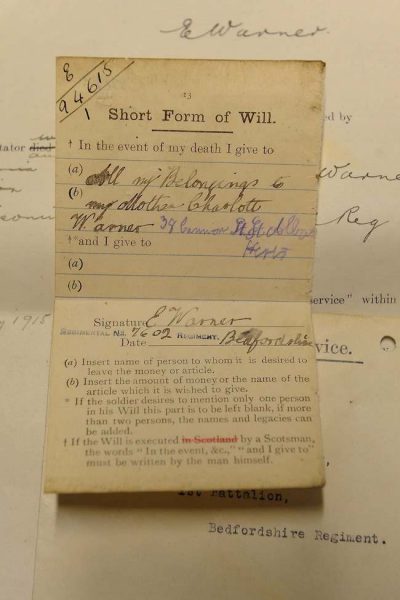 E Warner.
E
94615
1
13
Short Form of Will.
† In the event of my death I give to
(a) All my Belongings to
(b) my Mother Charlott
Warner 38 Cannon St St Albans
Herts
†*and I give to
(a)
(b)
Signature E Warner
REGIMENTAL No. 7602 REGIMENT.
Date Bedfordshire
(a) Insert name of person to whom it is desired to
leave the money or article.
(b) Insert the amount of money or the name of the
article which it is wished to give.
* If the soldier desires to mention only one person
in his Will this part is to be left blank, if more
than two persons, the names and legacies can
be added.
† If the Will is executed in Scotland by a Scotsman,
the words "In the event, &c.," "and I give to"
must be written by the man himself.
ed by
tator died
Warner
Reg
ervice" within
1915
vice.
1st Battalion,
Bedfordshire Regiment.